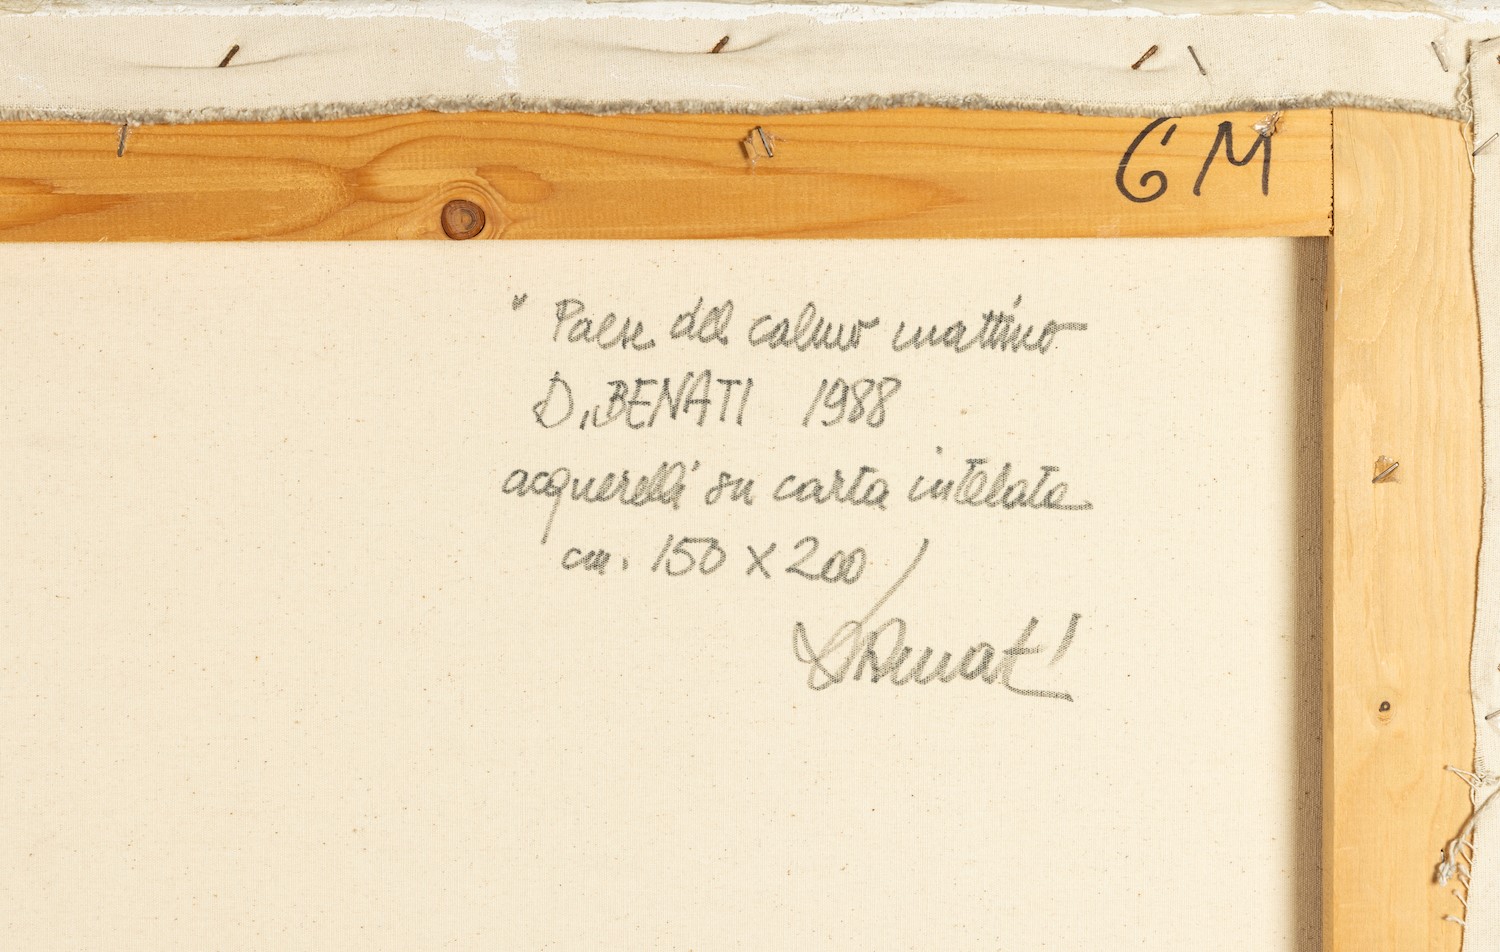 GM
" Paese del calmo mattino
D. BENATI 1988
acquerello su carta intelata
cm. 150 x 200
D Benati